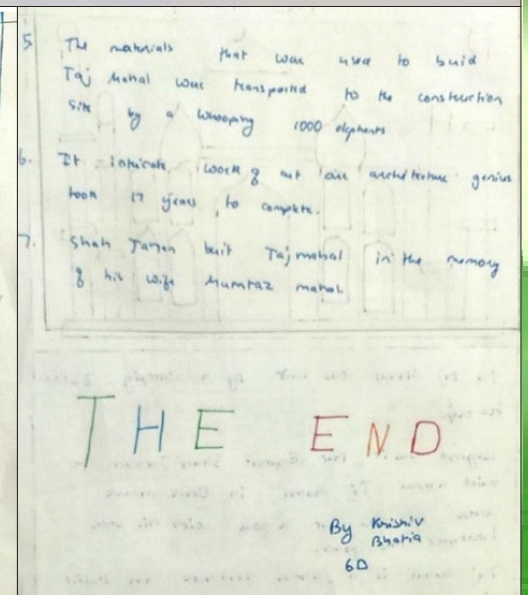 5. The materials that was used to buid
Taj Mahal was transported to the construction
site by a whooping 1000 elephants
6. It intricate work of art and architecture genius
took 17 years to complete.
7. Shah Jahan buit Taj mahal in the memory
of his wife Mumtaz mahal.
THE END
By Krishiv
Bhatia
6D